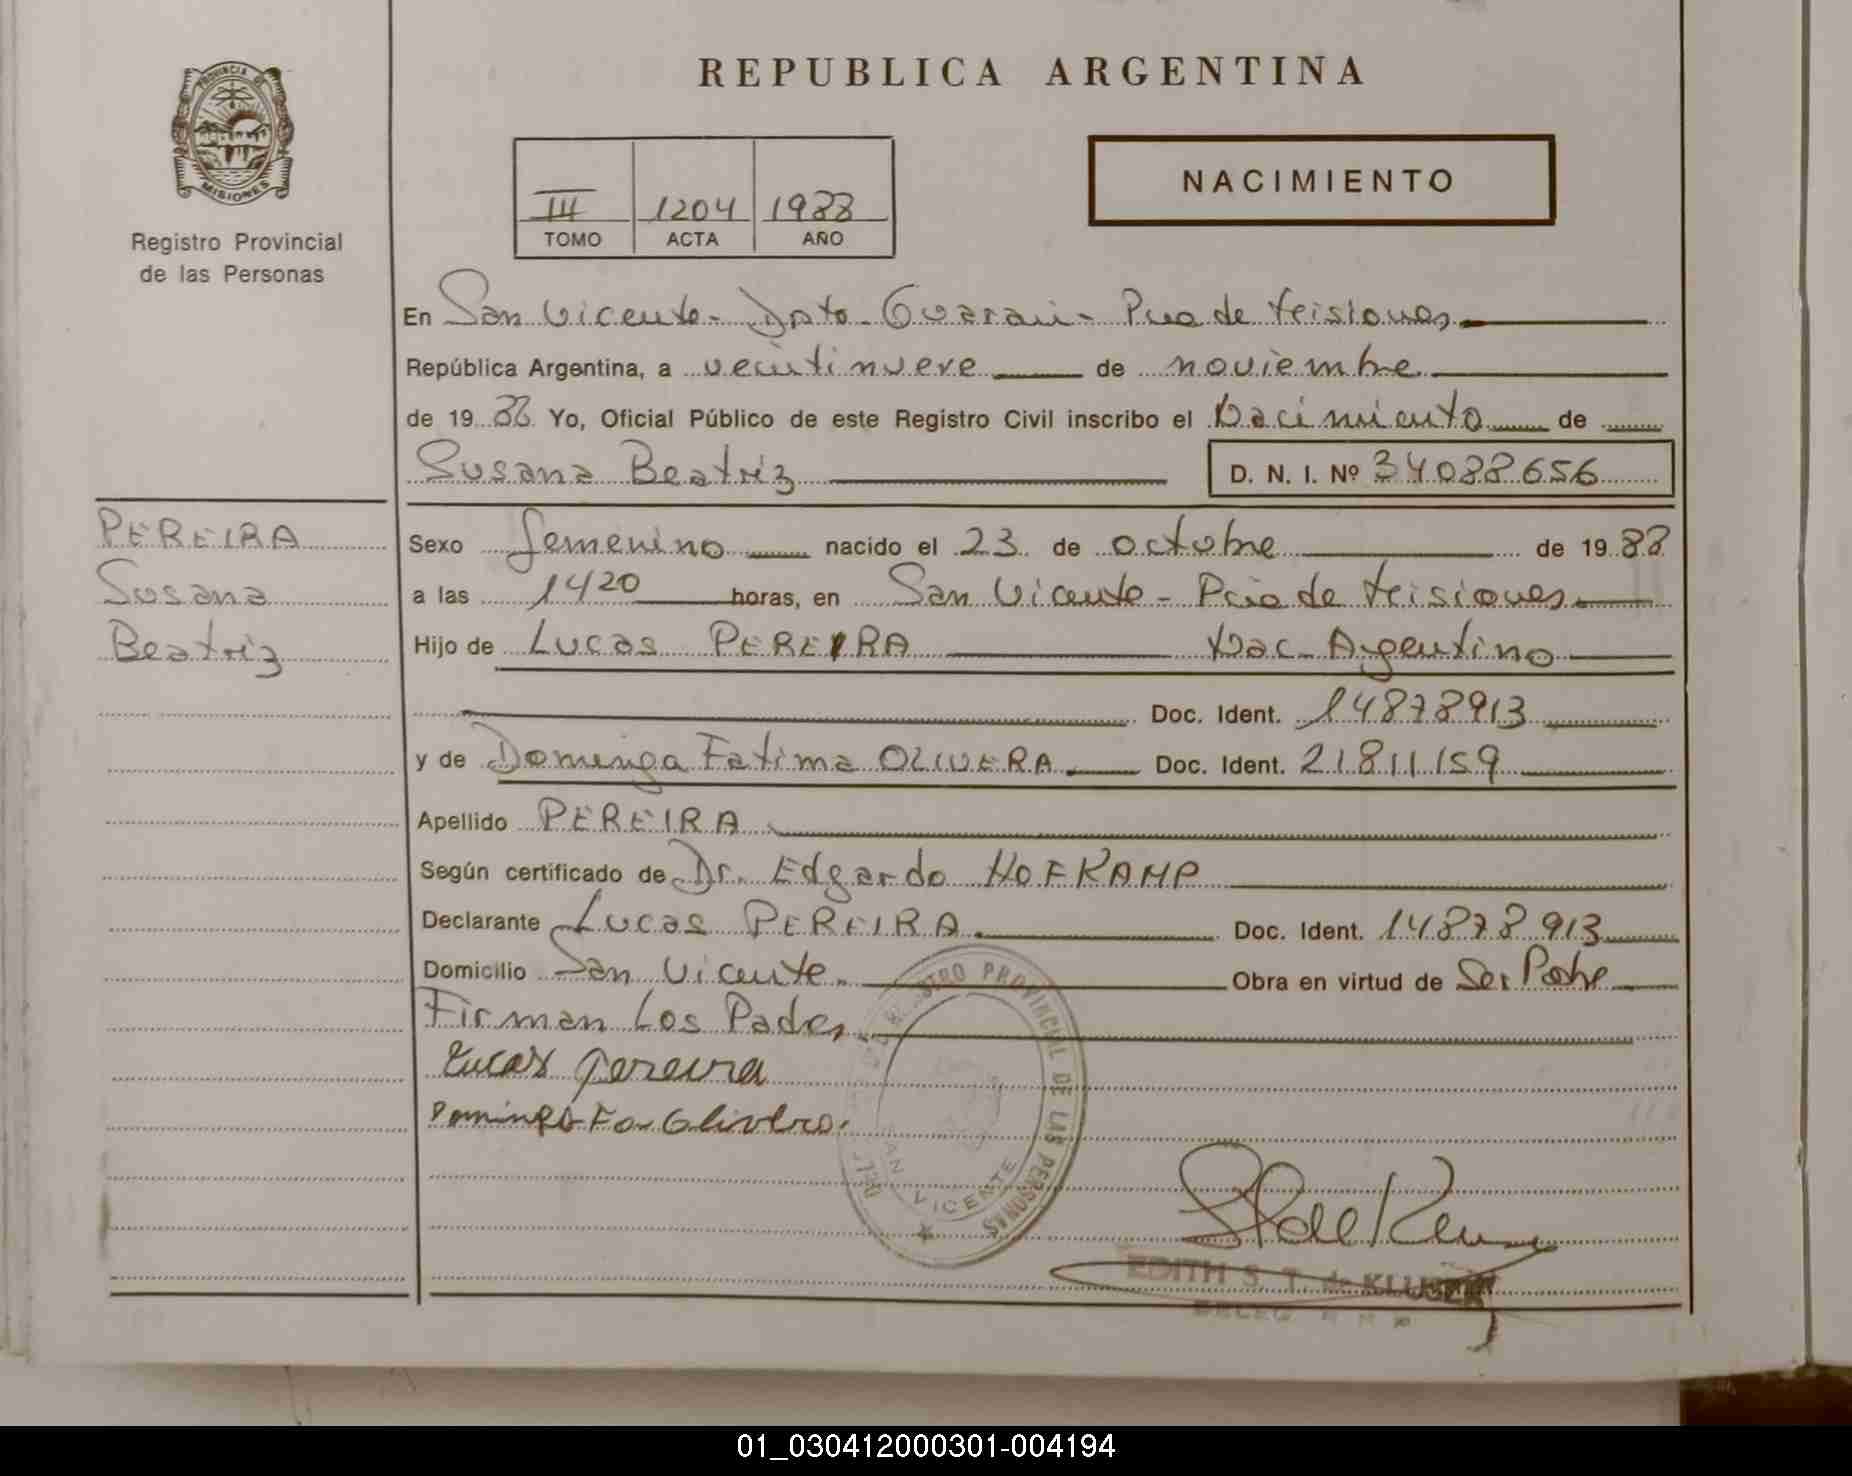 PROVINCIA DE
MISIONES
Registro Provincial
de las Personas
REPUBLICA ARGENTINA
III 1204 1988
TOMO ACTA AÑO
NACIMIENTO
En San Vicente - Dpto - Guarani - Pcia de Misiones
República Argentina, a veintinueve de noviembre
de 19 88 Yo, Oficial Público de este Registro Civil inscribo el Nacimiento de
Susana Beatriz D. N. I. Nº 34088656
PEREIRA
Susana
Beatriz
Sexo femenino nacido el 23 de octubre de 19 88
a las 1420 horas, en San Vicente - Pcia de Misiones
Hijo de Lucas PEREIRA Nac. Argentino
Doc. Ident. 14878913
y de Dominga Fatima OLIVERA Doc. Ident. 21811159
Apellido PEREIRA
Según certificado de Dr. Edgardo HOFKAMP
Declarante Lucas PEREIRA Doc. Ident. 14878913
Domicilio San Vicente. Obra en virtud de Ser Padre
Firman Los Padres
Lucas Pereira
Dominga Fa Olivera.
REGISTRO PROVINCIAL DE LAS PERSONAS
SAN VICENTE
EDITH S. T. de KLUSER
DELEG
01_030412000301-004194